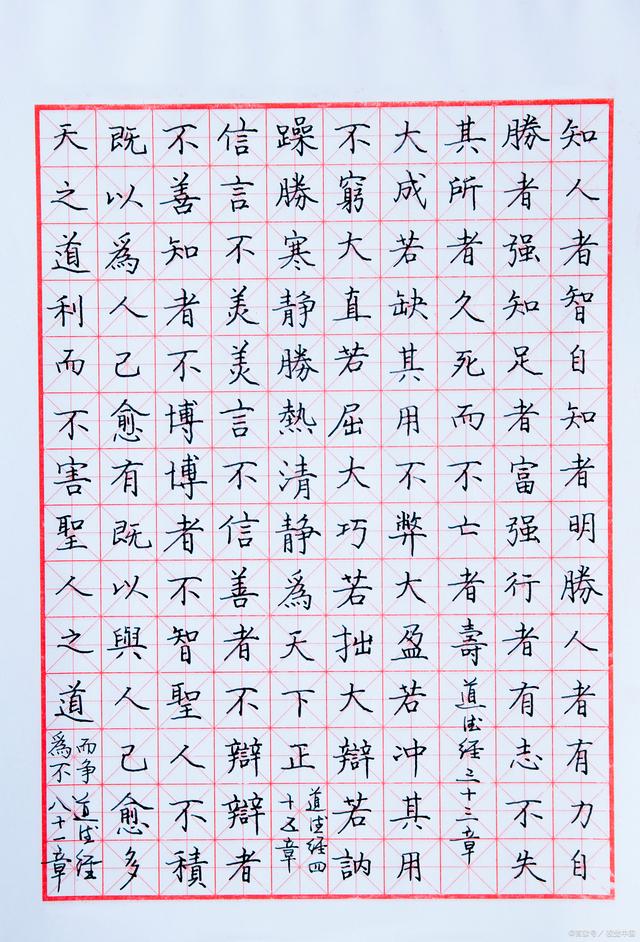 知人者智自知者明勝人者有力自
勝者强知足者富强行者有志不失
其所者久死而不亡者壽
道德經三十三章
大成若缺其用不弊大盈若冲其用
不窮大直若屈大巧若拙大辯若訥
躁勝寒静勝熱清静爲天下正
道德經四
十五章
信言不美美言不信善者不辯辯者
不善知者不博博者不智聖人不積
既以爲人己愈有既以與人己愈多
天之道利而不害聖人之道
爲而
不争
道德經
八十一章
©百家号/视觉中国